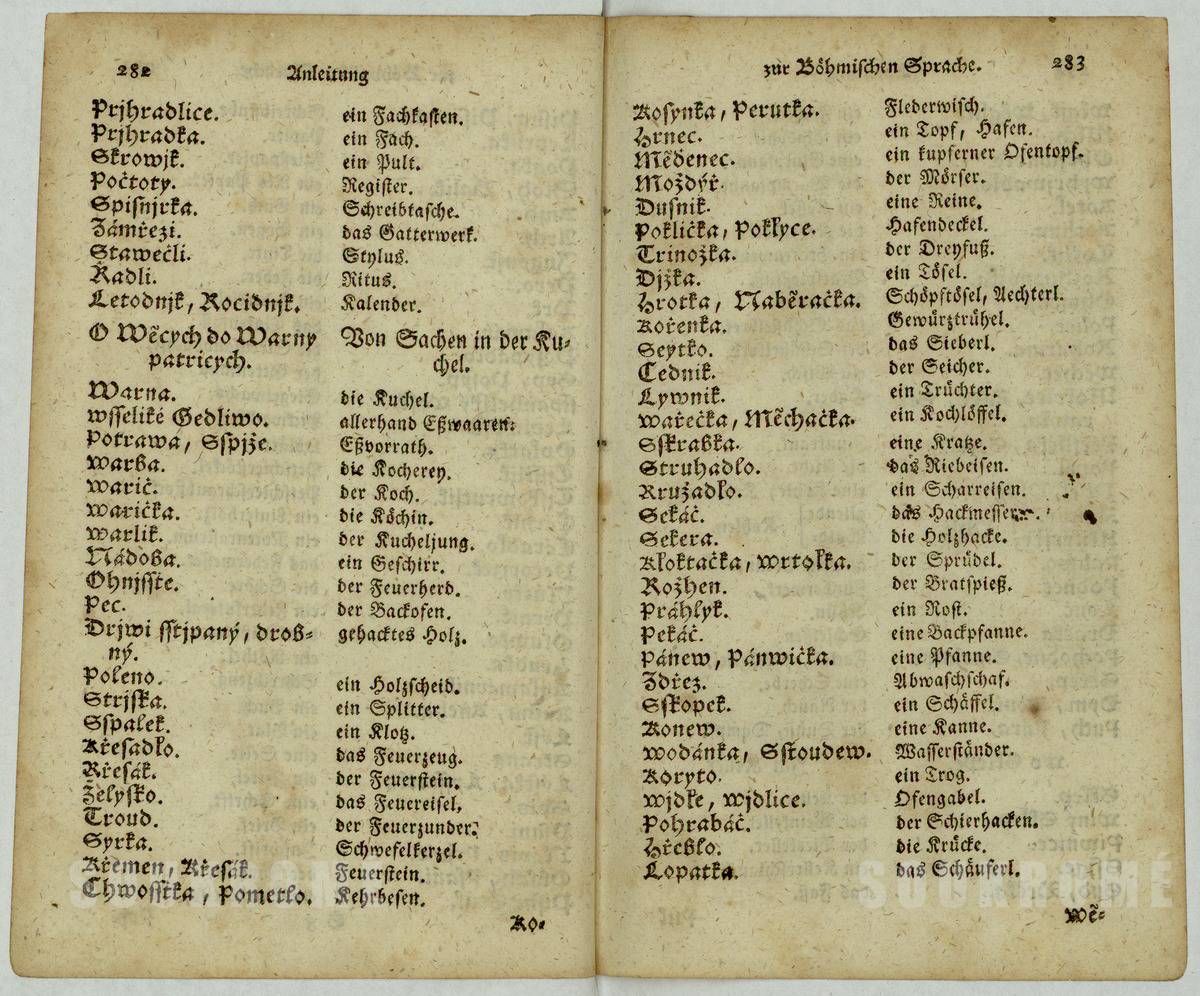 282 Anleitung
Prjhradlice. ein Fachkasten.
Prjhradka. ein Fach.
Skrowjk. ein Pult.
Počtoty. Register.
Spisnjrka. Schreibtasche.
Zámřezi. das Gatterwerk.
Stawečli. Stylus.
Řadli. Ritus.
Letodnjk, Rocidnjk. Kalender.
O Wěcych do Warny Von Sachen in der Ku-
patricych. chel.
Warna. die Kuchel.
wsseliké Gedliwo. allerhand Eßwaaren.
Potrawa, Sspjže. Eßvorrath.
warba. die Kocherey.
warič. der Koch.
warička. die Köchin.
warlik. der Kucheljung.
Nádoba. ein Geschirr.
Ohnjsste. der Feuerherd.
Pec. der Backofen.
Drjwi sstjpaný, drob- gehacktes Holz.
ný.
Poleno. ein Holzscheid.
Strjska. ein Splitter.
Sspalek. ein Klotz.
Křesadlo. das Feuerzeug.
Křesák. der Feuerstein.
Želysko. das Feuereisel,
Troud. der Feuerzunder.
Syrka. Schwefelkerzel.
Křemen, Křesák. Feuerstein.
Chwosstka, Pometlo. Kehrbesen.
Ko-
zur Böhmischen Sprache. 283
Kosynka, Perutka. Flederwisch.
Hrnec. ein Topf, Hafen.
Měděnec. ein kupferner Ofentopf.
Moždýř. der Mörser.
Dusnik. eine Reine.
Poklička, Poklyce. Hafendeckel.
Trinožka. der Dreyfuß.
Djžka. ein Tösel.
Hrotka, Naběračka. Schöpftösel, Aechterl.
Kořenka. Gewürztrühel.
Seytko. das Sieberl.
Cednik. der Seicher.
Lywnik. ein Trüchter.
wařečka, Měchačka. ein Kochlöffel.
Sskrabka. eine Kratze.
Struhadlo. das Riebeisen.
Kružadlo. ein Scharreisen.
Sekáč. das Hackmesser.
Sekera. die Holzhacke.
Kloktačka, wrtolka. der Sprüdel.
Rožhen. der Bratspieß.
Práhlyk. ein Rost.
Pekáč. eine Backpfanne.
Pánew, Pánwička. eine Pfanne.
Zdřez. Abwaschschaf.
Sskopek. ein Schäffel.
Konew. eine Kanne.
wodánka, Sstoudew. Wasserständer.
Koryto. ein Trog.
wjdle, wjdlice. Ofengabel.
Pohrabáč. der Schierhacken.
Hřeblo. die Krücke.
Lopatka. das Schäuferl.
Wě-